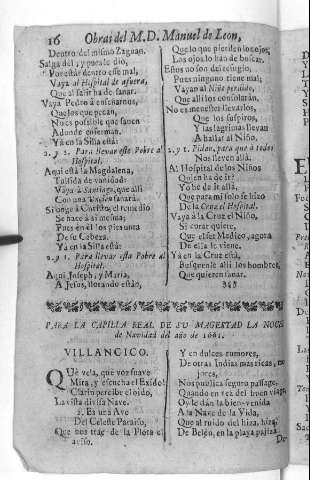 16 Obras del M. D. Manuel de Leon,
Dentro del mismo Zaguan.
Salga del; y pues le dio,
Por estàr dentro esse mal,
Vaya al Hospital de afuera,
Que al salir ha de sanar.
Vaya Pedro à enseñarnos,
Que los que pecan,
No es possible que sanen
Adonde enferman.
Ya en la Silla està:
2. y 1. Para llevar este Pobre al
Hospital.
Aqui està la Magdalena,
Tullida de vanidad:
Vaya à Santiago, que alli
Con una
Sigue à Christo, el remedio
Se hace à si mesma;
Pues en èl los pies unta
De su Cabeza.
Ya en la Silla està:
2. y 1. Para llevar este Pobre al
Hospital.
Aqui Joseph, y Maria,
A Jesus, llorando estàn,
Que lo que pierden los ojos,
Los ojos lo han de buscar.
Estos no son del refugio,
Pues ninguno tiene mal;
Vayan al Niño perdido,
Que alli los consolaràn.
No es menester llevarlos,
Que los suspiros,
Y las lagrimas llevan
A hallar al Niño.
2. y 1. Pidan, para que à todos
Nos lleven allà.
Al Hospital de los Niños
Quien ha de ir?
Yo he de ir allà,
Que para mi solo se hizo
De la Cruz el Hospital.
Vaya à la Cruz el Niño,
Si curar quiere,
Que el ser Medico, agora
De ella le viene.
Ya en la Cruz està,
Busquenle alli los hombres,
Que quieren sanar.
PARA LA CAPILLA REAL DE SU MAGESTAD LA NOCHE
de Navidad del año de 1661.
VILLANCICO.
QUè vela, que voz suave
Mira, y escucha el Exido!
Clarin percibe el oìdo,
La vista divisa Nave.
1. Es una Ave
Del Celeste Paraiso,
Que nos trae de la Flota el
aviso.
Y en dulces rumores,
De otras Indias mas ricas, mejores,
Nos publica seguro passage.
Quando en vez del buen viage
Oy le dàn la bien-venida
A la Nave de la Vida,
Que al ruido del hiza, hiza,
De Belèn, en la playa pajiza